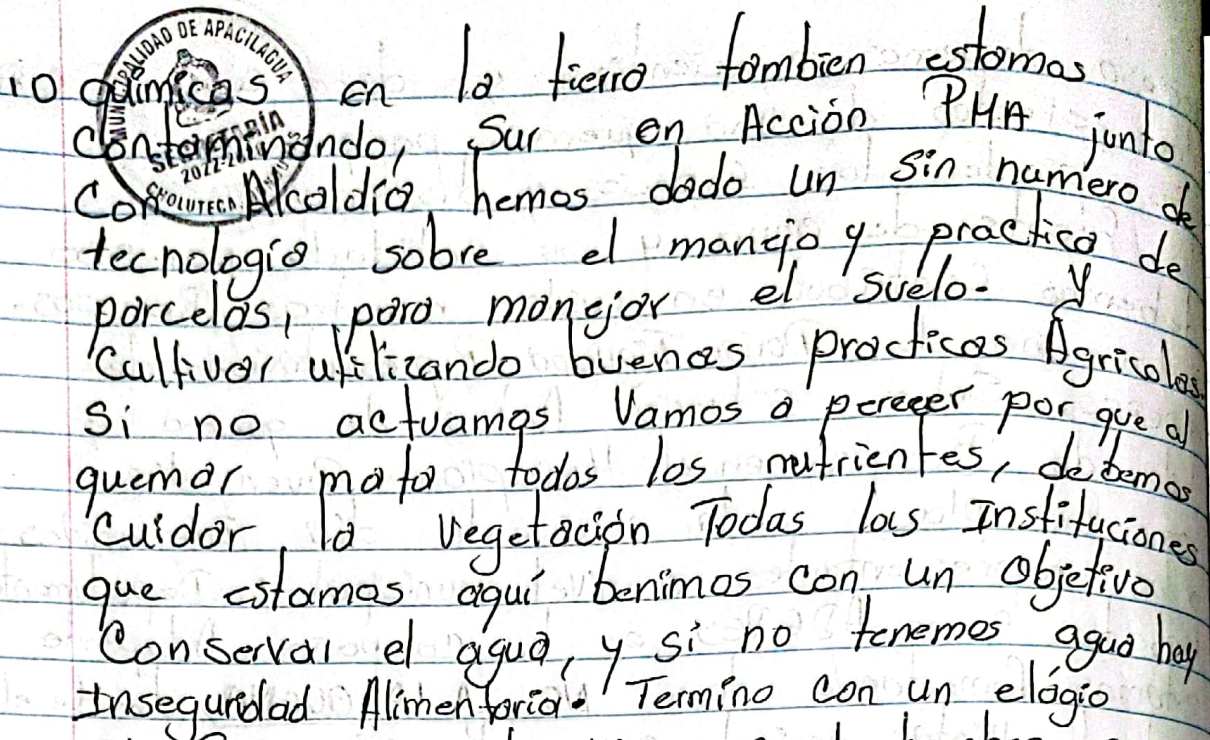 MUNICIPALIDAD DE APACILAGUA
SECRETARIA
2022-2026
CHOLUTECA
10 químicas en la tierra tombien estamos
Contaminando, Sur en Acción PMA junto
Con Alcaldía, hemos dado un Sin numero de
tecnologia sobre el manejo y practica de
parcelas, para manejar el suelo. y
Cultivar utilizando buenas practicas Agricolas
Si no actuamos Vamos a perecer por que al
quemar mata todos los nutrientes, debemos
Cuidar la Vegetación Todas las Instituciones
que estamos aquí benimos con un Objetivo
Conservar el agua, y si no tenemos agua hay
Inseguridad Alimentaria. Termino con un elógio